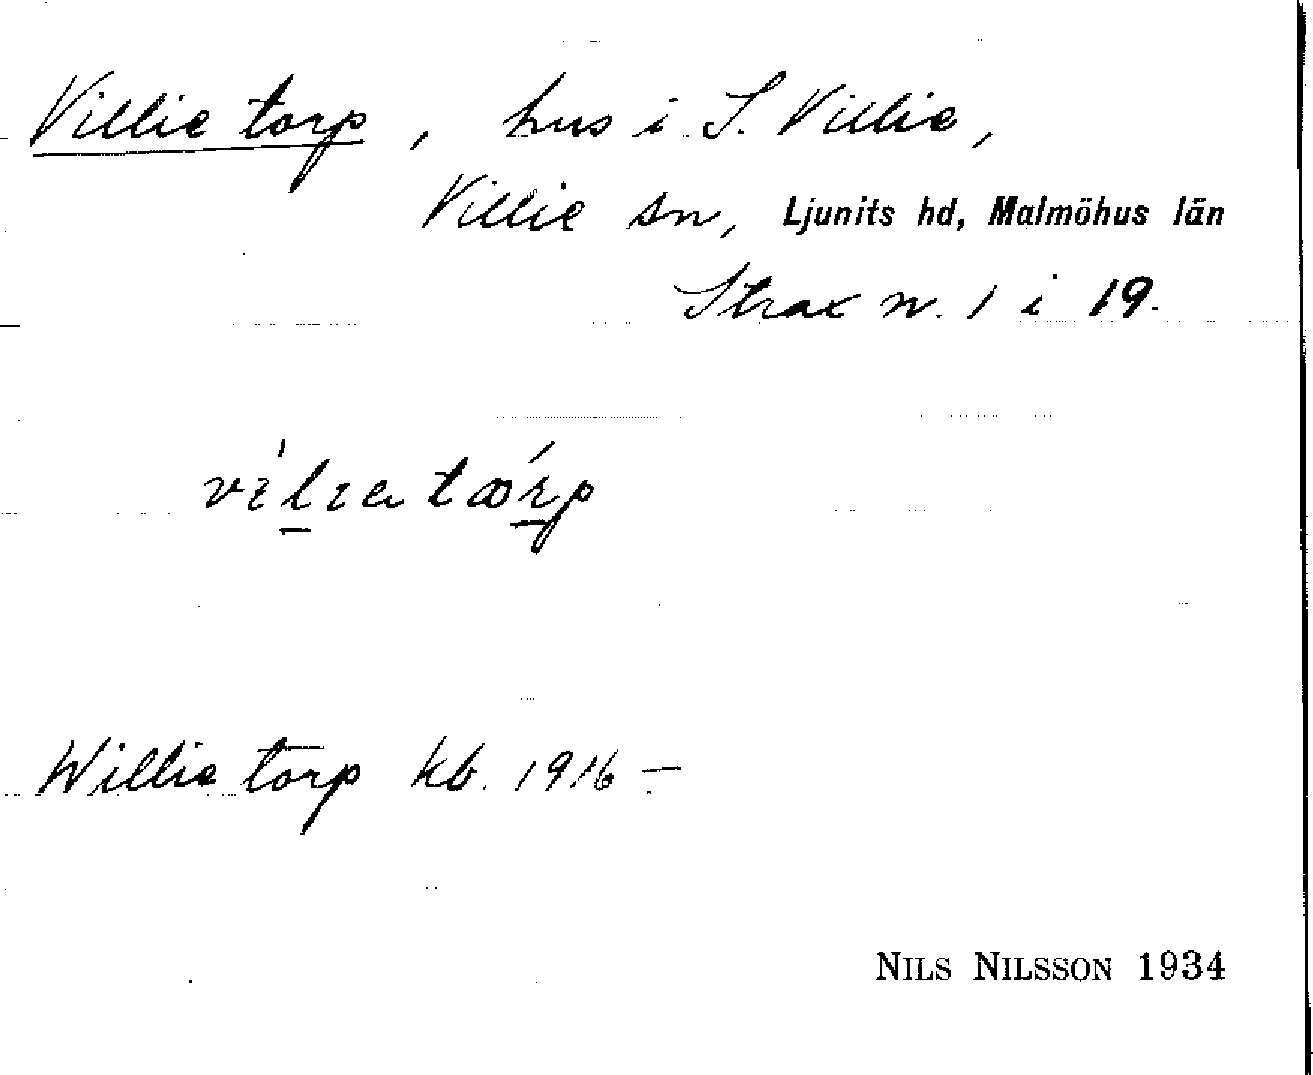 Villie torp, hus i S. Villie,
Villie sn, Ljunits hd, Malmöhus län
Strax n. 1 i 19.
Willie torp kb. 1916 –
NILS NILSSON 1934